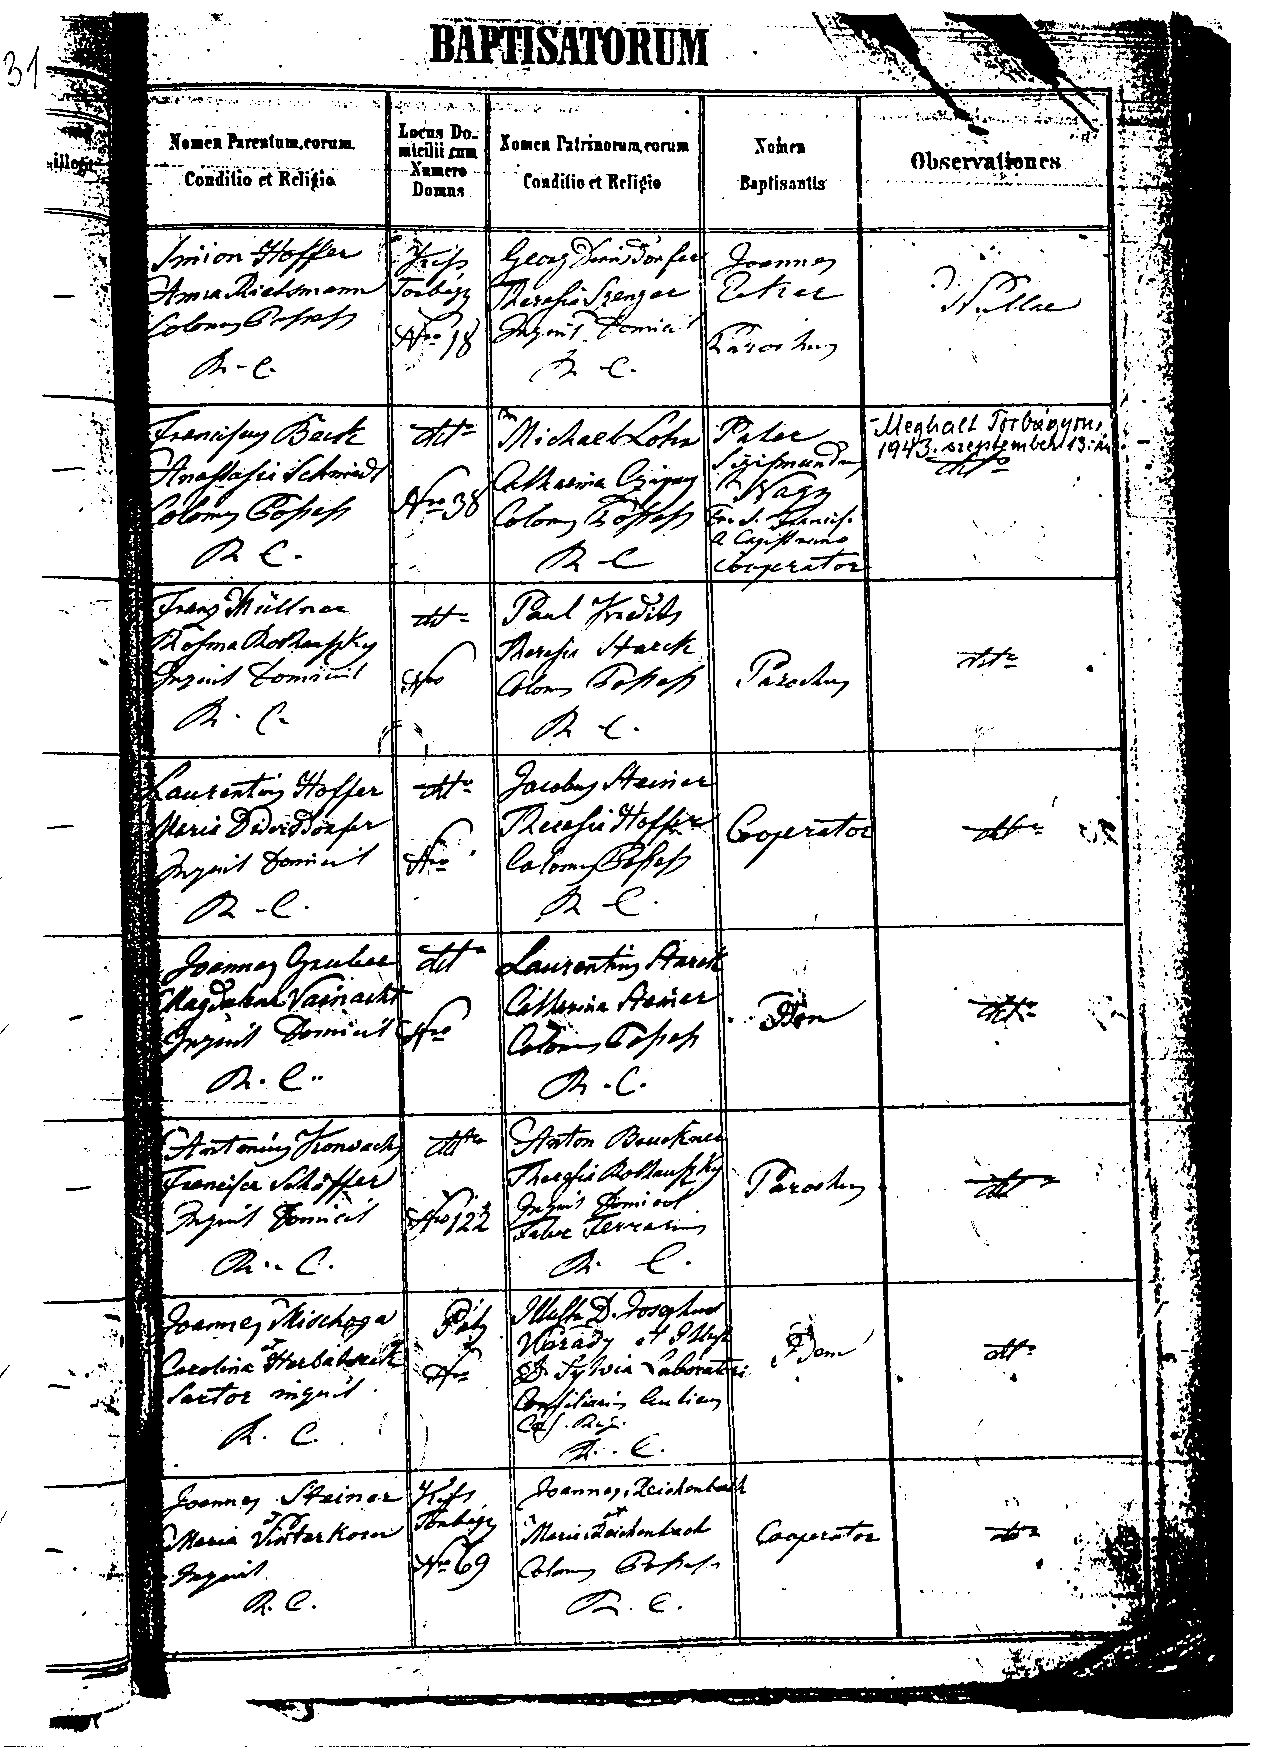 31
BAPTISATORUM
Nomen Parentum, eorum
Conditio et Religio
Locus Do-
micilii cum
Numero
Domus
Nomen Patrinorum, eorum
Conditio et Religio
Nomen
Baptisantis
Observationes
Simon Hoffer
Anna Rietsmann
Colonus Possess
R. C.
Kiss
Torbágy
Nro 18
Georg
Theresia Szenger
Inquil Domicil
R. C.
Joannes
Parochus
Nullae
Franciscus Beck
Anastasia Schmidt
Colonus Possess
R. C.
dtto
Nro 38
Michael Lohn
Catharina
Colonus Possess
R. C.
Pater
Sigismundus
Nagy
a Capistrano
Cooperator
Meghalt Torbágyon,
1943. szeptember 13.-án
dtto
Franz Müllner
Rosina
Inquil Domicil
R. C.
dtto
Nro
Paul
Theresia Starck
Colonus Possess
R. C.
Parochus
dtto
Laurentius Hoffer
Maria
Inquil Domicil
R. C.
dtto
Nro
Jacobus Steiner
Theresia Hoffer
Colonus Possess
R. C.
Cooperator
dtto
Joannes Gruber
Magdalena
Inquil Domicil
R. C.
dtto
Nro
Laurentius Starck
Catharina Steiner
Colonus Possess
R. C.
Idem
dtto
Antonius
Francisca Schöffer
Inquil Domicil
R. C.
dtto
Nro 122
Anton Bruckner
Theresia
Inquil Domicil
Faber Ferrarius
R. C.
Parochus
dtto
Joannes Mischoga
et
Carolina
Sartor inquil
R. C.
Nro
Illustr D. Josephus
Várady et Illustr
D. Sylvia
Consiliarius
R. C.
Idem
dtto
Joannes Steiner
et
Maria
Inquil
R. C.
Kiss
Torbágy
Nro 69
Joannes Reichenbach
et
Maria Reichenbach
Colonus Possess
R. C.
Cooperator
dtto